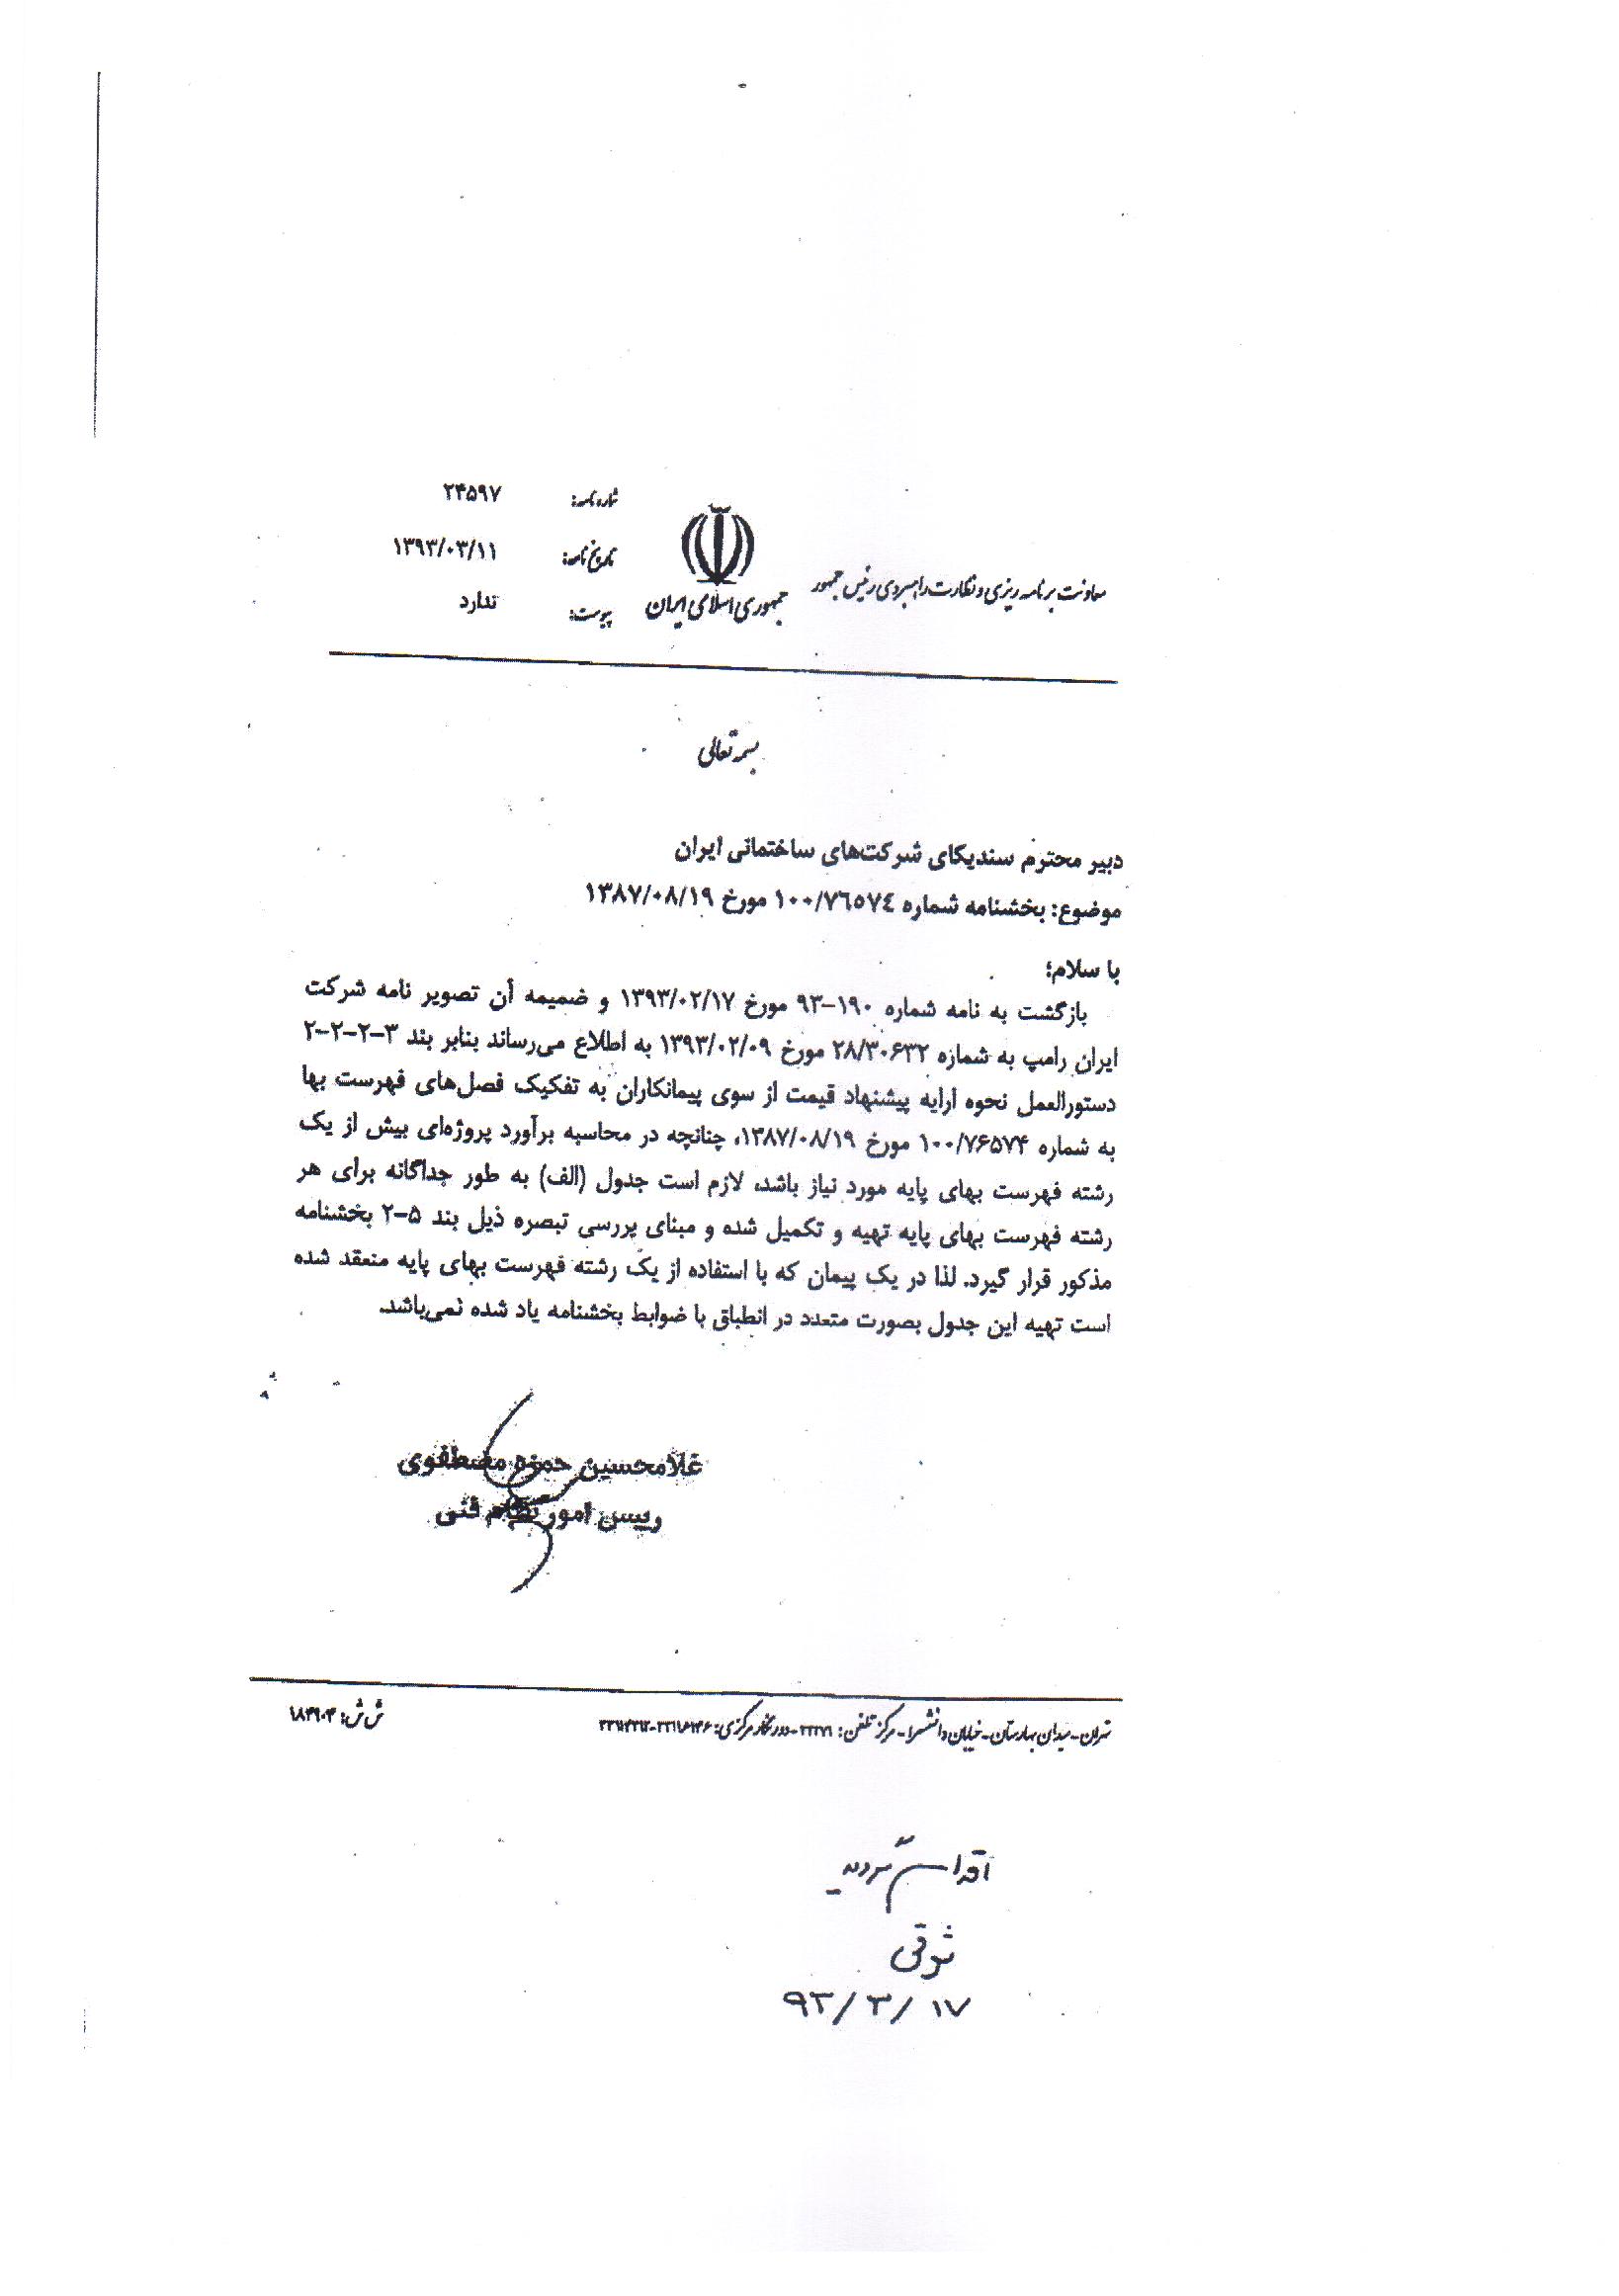 معاونت برنامه ریزی و نظارت راهبردی رئیس جمهور
جمهوری اسلامی ایران
شماره نامه: ۲۴۵۹۷
تاریخ نامه: ۱۳۹۳/۰۳/۱۱
پیوست: ندارد
بسمه تعالی
دبیر محترم سندیکای شرکت‌های ساختمانی ایران
موضوع: بخشنامه شماره ۱۰۰/۷٦٥٧٤ مورخ ۱۳۸۷/۰۸/۱۹
با سلام؛
بازگشت به نامه شماره ۱۹۰-۹۳ مورخ ۱۳۹۳/۰۲/۱۷ و ضمیمه آن تصویر نامه شرکت
ایران رامپ به شماره ۲۸/۳۰۶۳۲ مورخ ۱۳۹۳/۰۲/۰۹ به اطلاع می‌رساند بنابر بند ۳-۲-۲-۲
دستورالعمل نحوه ارایه پیشنهاد قیمت از سوی پیمانکاران به تفکیک فصل‌های فهرست بها
به شماره ۱۰۰/۷۶۵۷۴ مورخ ۱۳۸۷/۰۸/۱۹، چنانچه در محاسبه برآورد پروژه‌ای بیش از یک
رشته فهرست بهای پایه مورد نیاز باشد، لازم است جدول (الف) به طور جداگانه برای هر
رشته فهرست بهای پایه تهیه و تکمیل شده و مبنای بررسی تبصره ذیل بند ۵-۲ بخشنامه
مذکور قرار گیرد. لذا در یک پیمان که با استفاده از یک رشته فهرست بهای پایه منعقد شده
است تهیه این جدول بصورت متعدد در انطباق با ضوابط بخشنامه یاد شده نمی‌باشد.
غلامحسین حمزه مصطفوی
رییس امور نظام فنی
تهران - میدان بهارستان - خیابان دانشسرا - مرکز تلفن: ۳۳۲۷۱ - دورنگار مرکزی:
ش ش: ۱۸۴۹۰۴
اقدام گردید
۹۳/۳/۱۷